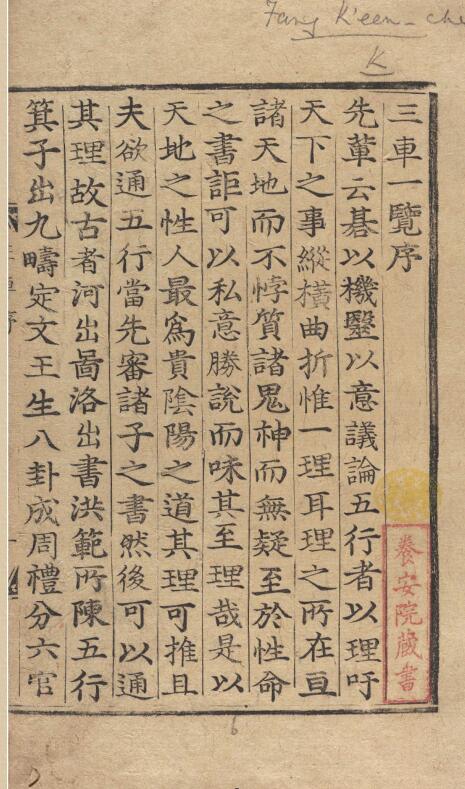 Fang K'een-che
K
三車一覽序
先軰云碁以機毉以意議論五行者以理吁
天下之事縱橫曲折惟一理耳理之所在亘
諸天地而不悖質諸鬼神而無疑至於性命
之書詎可以私意勝說而味其至理哉是以
天地之性人最爲貴陰陽之道其理可推且
夫欲通五行當先審諸子之書然後可以通
其理故古者河出啚洛出書洪範所陳五行
箕子出九疇定文王生八卦成周禮分六官
養安院藏書
6